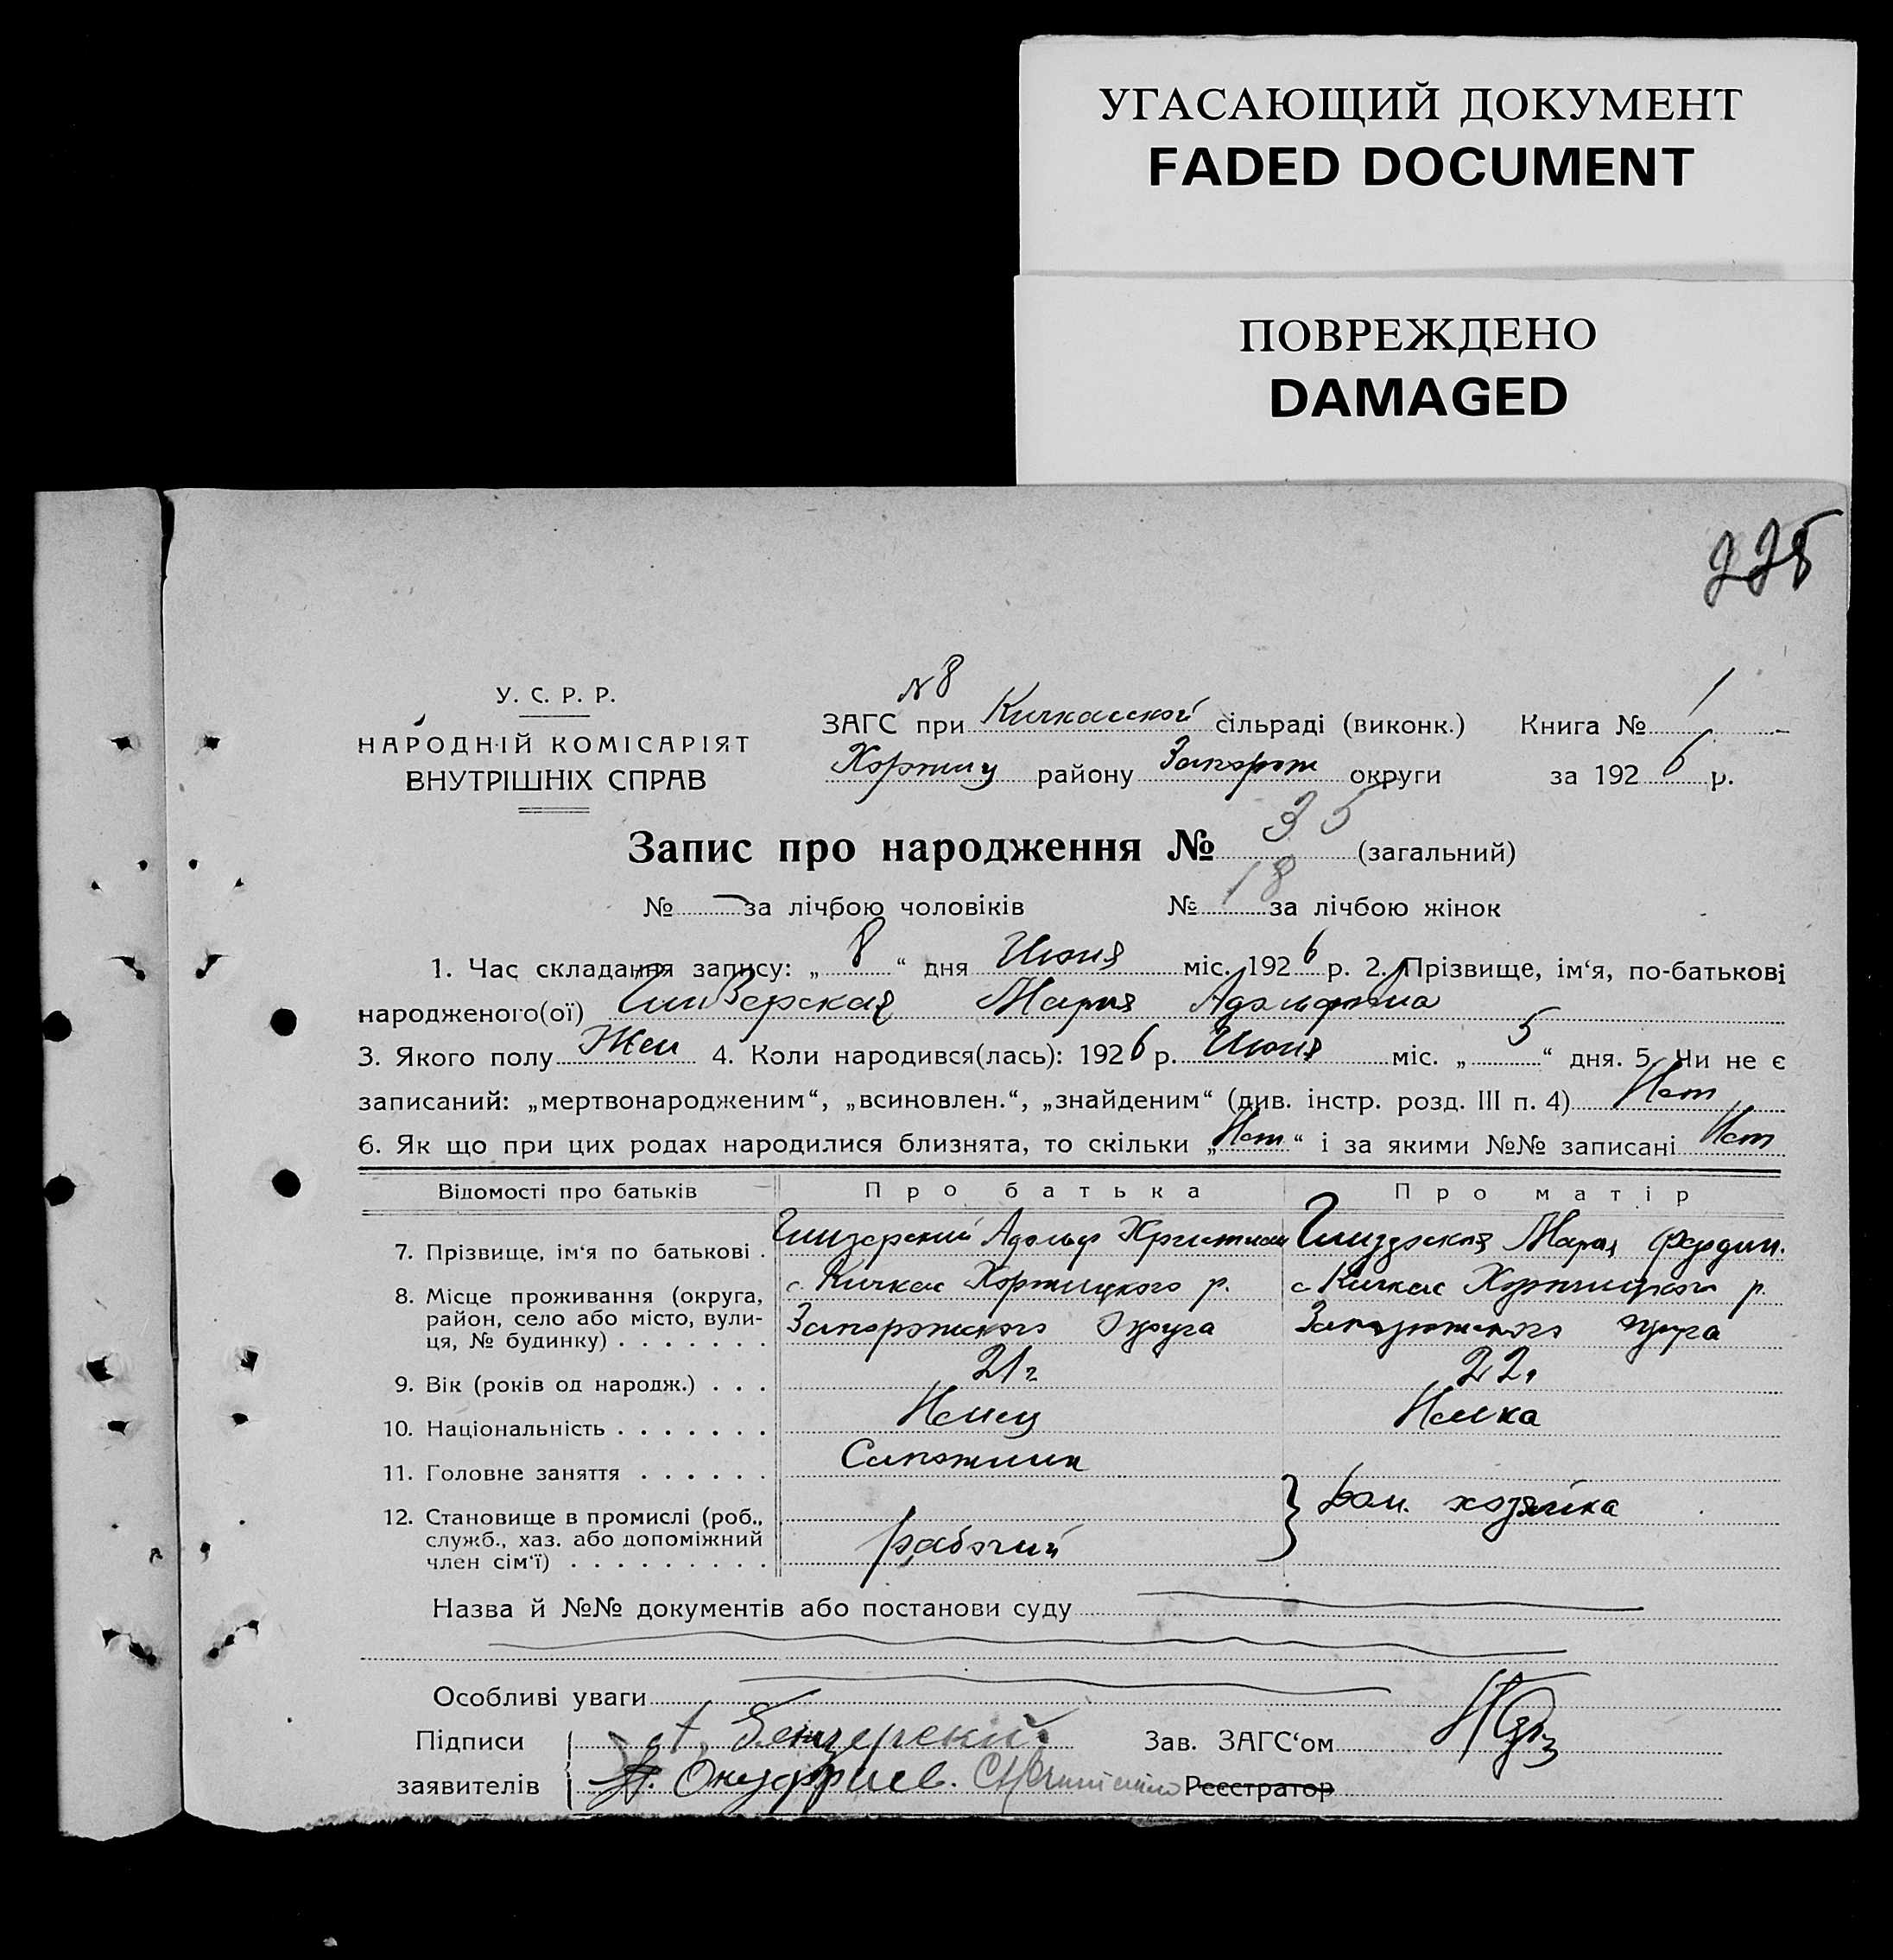 УГАСАЮЩИЙ ДОКУМЕНТ
FADED DOCUMENT
ПОВРЕЖДЕНО
DAMAGED
228
У. С. Р. Р.
НАРОДНІЙ КОМІСАРІЯТ
ВНУТРІШНІХ СПРАВ
№ 8
ЗАГС при Кичкасской сільраді (виконк.) Книга № 1
Хортиц району Запорож округи за 1926 р.
Запис про народження № 35 (загальний)
№ — за лічбою чоловіків № 18 за лічбою жінок
1. Час складання запису: „8“ дня Июня міс. 1926 р. 2. Прізвище, ім‘я, по-батькові
народженого(ої) Гинзерская Мария Адольфовна
3. Якого полу Жен 4. Коли народився(лась): 1926 р. Июня міс. „5“ дня. 5. Чи не є
записаний: „мертвонародженим“, „всиновлен.“, „знайденим“ (див. інстр. розд. III п. 4) Нет
6. Як що при цих родах народилися близнята, то скільки „Нет“ і за якими №№ записані Нет
Відомості про батьків Про батька Про матір
7. Прізвище, ім‘я по батькові . Гинзерский Адольф Христиан Гинзерская Мария Фердин.
8. Місце проживання (округа, с. Кичкас Хортицкого р. с Кичкас Хортицкого р.
район, село або місто, вули- Запорожского Округа Запорожского округа
ця, № будинку) . . . . . . .
9. Вік (років од народж.) . . . 21 г 22 г
10. Національність . . . . . . . Немец Немка
11. Головне заняття . . . . . . Сапожник
12. Становище в промислі (роб., Дом. хозяйка
служб., хаз. або допоміжний рабочий
член сім‘ї) . . . . . . . . .
Назва й №№ документів або постанови суду
Особливі уваги
Підписи А. Гензерский Зав. ЗАГС‘ом
заявителів А. Онуфриев. Реєстратор